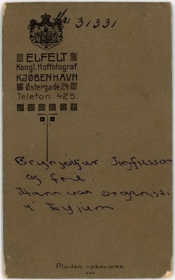 Mms 31331
ELFELT
Kongl. Hoffotograf
KJØBENHAVN
Østergade 24
Telefon 425.
Brynjólfur Sigfússon
og frú.
Hann var organisti
í Eyjum
Pladen opbevares